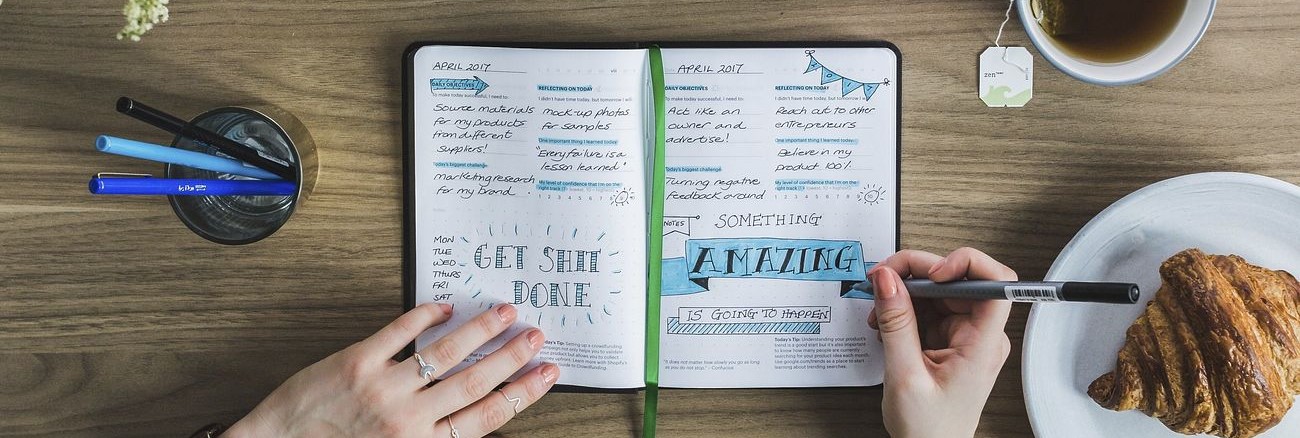 APRIL 2017
DAILY OBJECTIVES
To make today successful, I need to:
Source materials
for my products
from different
suppliers!
Today's biggest challenge
marketing research
for my brand
REFLECTING ON TODAY
I didn't have time today, but tomorrow I will
mock-up photos
for samples
One important thing I learned today:
"Every failure is a
lesson learned"
My level of confidence that I'm on the
right track
1 2 3 4 5 6 7 8
MON
TUE
WED
THURS
FRI
SAT
GET SHIT
DONE
Today's Tip: Getting up a crowdfunding
APRIL 2017
DAILY OBJECTIVES
To make today successful, I need to:
Act like an
owner and
advertise!
Today's biggest challenge
Turning negative
feedback around
REFLECTING ON TODAY
I didn't have time today, but tomorrow I will
Reach out to other
entrepreneurs
One important thing I learned today:
Believe in my
product 100%
My level of confidence that I'm on the
right track
1 2 3 4 5 6 7 8
NOTES
SOMETHING
AMAZING
IS GOING TO HAPPEN
"It does not matter how slowly you go so long
as you do not stop." - Confucius
Today's Tip: Understanding your product's
trend is a good start but it's also important
to know how many people are currently
searching for your product idea each month.
Use google.com/trends as a place to start
learning about trending searches.
zen